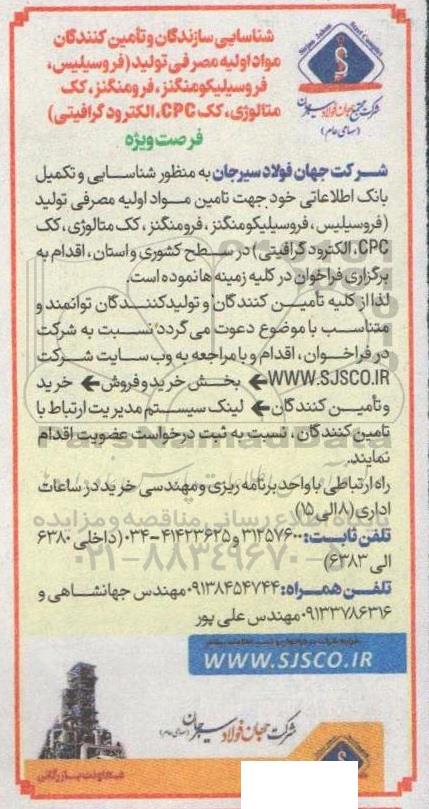 Sirjan Jahan Steel Complex
شرکت مجتمع جهان فولاد سیرجان
(سهامی عام)
شناسایی سازندگان و تأمین کنندگان
مواد اولیه مصرفی تولید (فروسیلیس،
فروسیلیکومنگنز، فرومنگنز، کک
متالوژی، کک CPC، الکترود گرافیتی)
فرصت ویژه
شرکت جهان فولاد سیرجان به منظور شناسایی و تکمیل
بانک اطلاعاتی خود جهت تامین مواد اولیه مصرفی تولید
(فروسیلیس، فروسیلیکومنگنز، فرومنگنز، کک متالوژی، کک
CPC، الکترود گرافیتی) در سطح کشوری و استان، اقدام به
برگزاری فراخوان در کلیه زمینه ها نموده است.
لذا از کلیه تأمین کنندگان و تولیدکنندگان توانمند و
متناسب با موضوع دعوت می گردد نسبت به شرکت
در فراخوان، اقدام و با مراجعه به وب سایت شرکت
WWW.SJSCO.IR ← بخش خرید و فروش ← خرید
و تأمین کنندگان ← لینک سیستم مدیریت ارتباط با
تامین کنندگان، نسبت به ثبت درخواست عضویت اقدام
نمایند.
راه ارتباطی با واحد برنامه ریزی و مهندسی خرید در ساعات
اداری (۸ الی ۱۵)
تلفن ثابت: ۳۱۲۵۷۶۰۰ و ۴۱۴۲۳۶۲۵-۰۳۴ (داخلی ۶۳۸۰
الی ۶۳۸۳)
تلفن همراه: ۰۹۱۳۸۴۵۴۷۴۴ مهندس جهانشاهی و
۰۹۱۳۳۷۸۶۳۱۶ مهندس علی پور
WWW.SJSCO.IR
شرکت جهان فولاد سیرجان
(سهامی عام)
معاونت بازرگانی
ParsNamadData
پایگاه اطلاع رسانی مناقصه و مزایده
۰۲۱-۸۸۳۴۹۶۷۰-۵